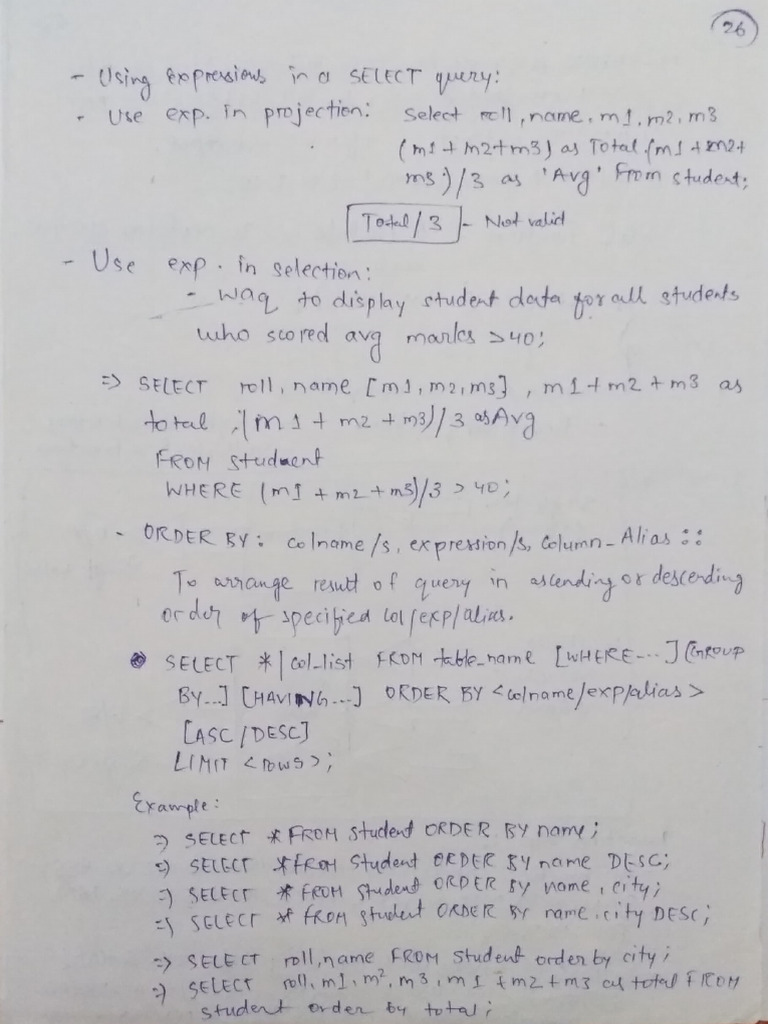 26
- Using expressions in a SELECT query:
- Use exp. in projection: Select roll, name, m1, m2, m3
(m1 + m2+m3) as Total, (m1 + m2+
m3)/3 as 'Avg' From student;
Total/3 - Not valid
- Use exp. in selection:
- waq to display student data for all students
who scored avg marks >40;
=> SELECT roll, name [m1, m2, m3], m1+m2+m3 as
total, (m1 + m2 + m3)/3 as Avg
FROM student
WHERE (m1 + m2 + m3)/3 > 40;
- ORDER BY: colname/s, expression/s, column_Alias ::
To arrange result of query in ascending or descending
order of specified col/exp/alias.
SELECT *| col_list FROM table_name [WHERE---] [GROUP
BY---] [HAVING---] ORDER BY <colname/exp/alias>
[ASC/DESC]
LIMIT <rows>;
Example:
=> SELECT * FROM student ORDER BY name;
=> SELECT * FROM Student ORDER BY name DESC;
=> SELECT * FROM student ORDER BY name, city;
=> SELECT * from student ORDER BY name, city DESC;
=> SELECT roll,name FROM student order by city;
=> SELECT roll, m1, m2, m3, m1 + m2+m3 as total FROM
student order by total;